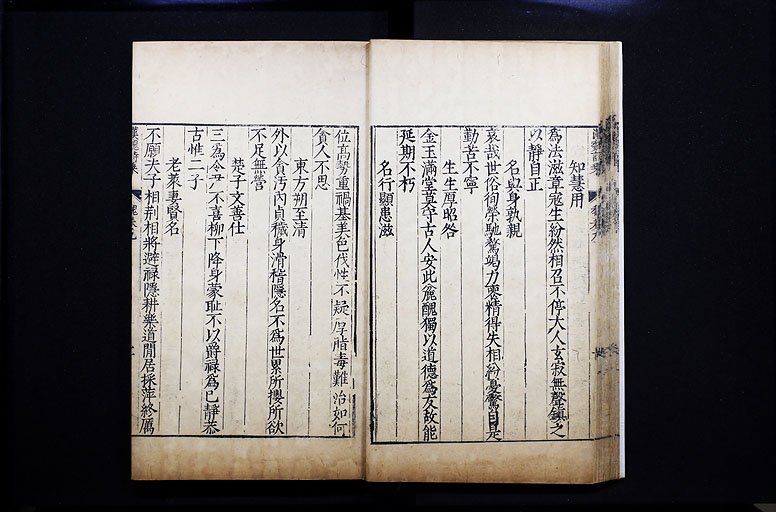 智慧用
為法滋章冦生紛然相召不停大人玄寂無聲鎮之
以靜自正
名與身孰親
哀哉世俗徇榮馳騖竭力喪精得失相紛憂驚自是
勤苦不寧
生生厚招咎
金玉滿堂莫守古人安此麄醜獨以道德為友故能
延期不朽
名行顯患滋
位高勢重禍基美色伐性不疑厚脂毒難治如何
貪人不思
東方朔至清
外以貪汚內貞穢身滑稽隱名不為世累所攖所欲
不足無營
楚子文善仕
三為令尹不喜柳下降身蒙耻不以爵祿為已靜恭
古惟二子
老萊妻賢名
不願夫子相荆相將避祿隱耕樂道閒居採萍終厲